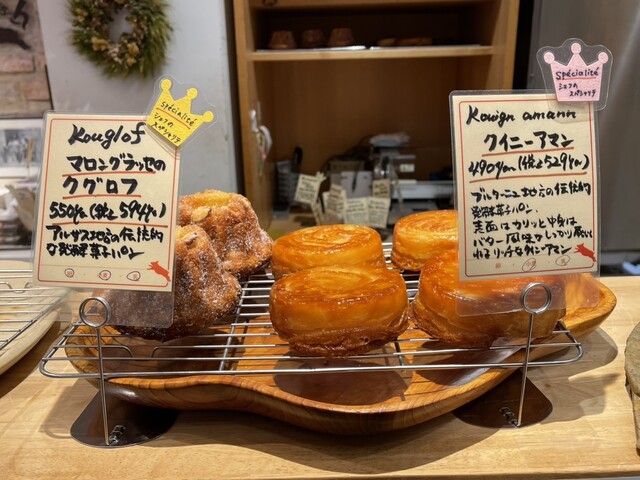 Spécialité
シェフの
スペシャリテ
Kouglof
マロングラッセの
クグロフ
550yen(税込594yen)
アルザス地方の伝統的
な発酵菓子パン
Spécialité
シェフの
スペシャリテ
Kouign amann
クイニーアマン
490yen(税込529yen)
ブルターニュ地方の伝統的
発酵菓子パン、
表面はカリッと中身は
バター風味がしっかり
リッチなクイニーアマン